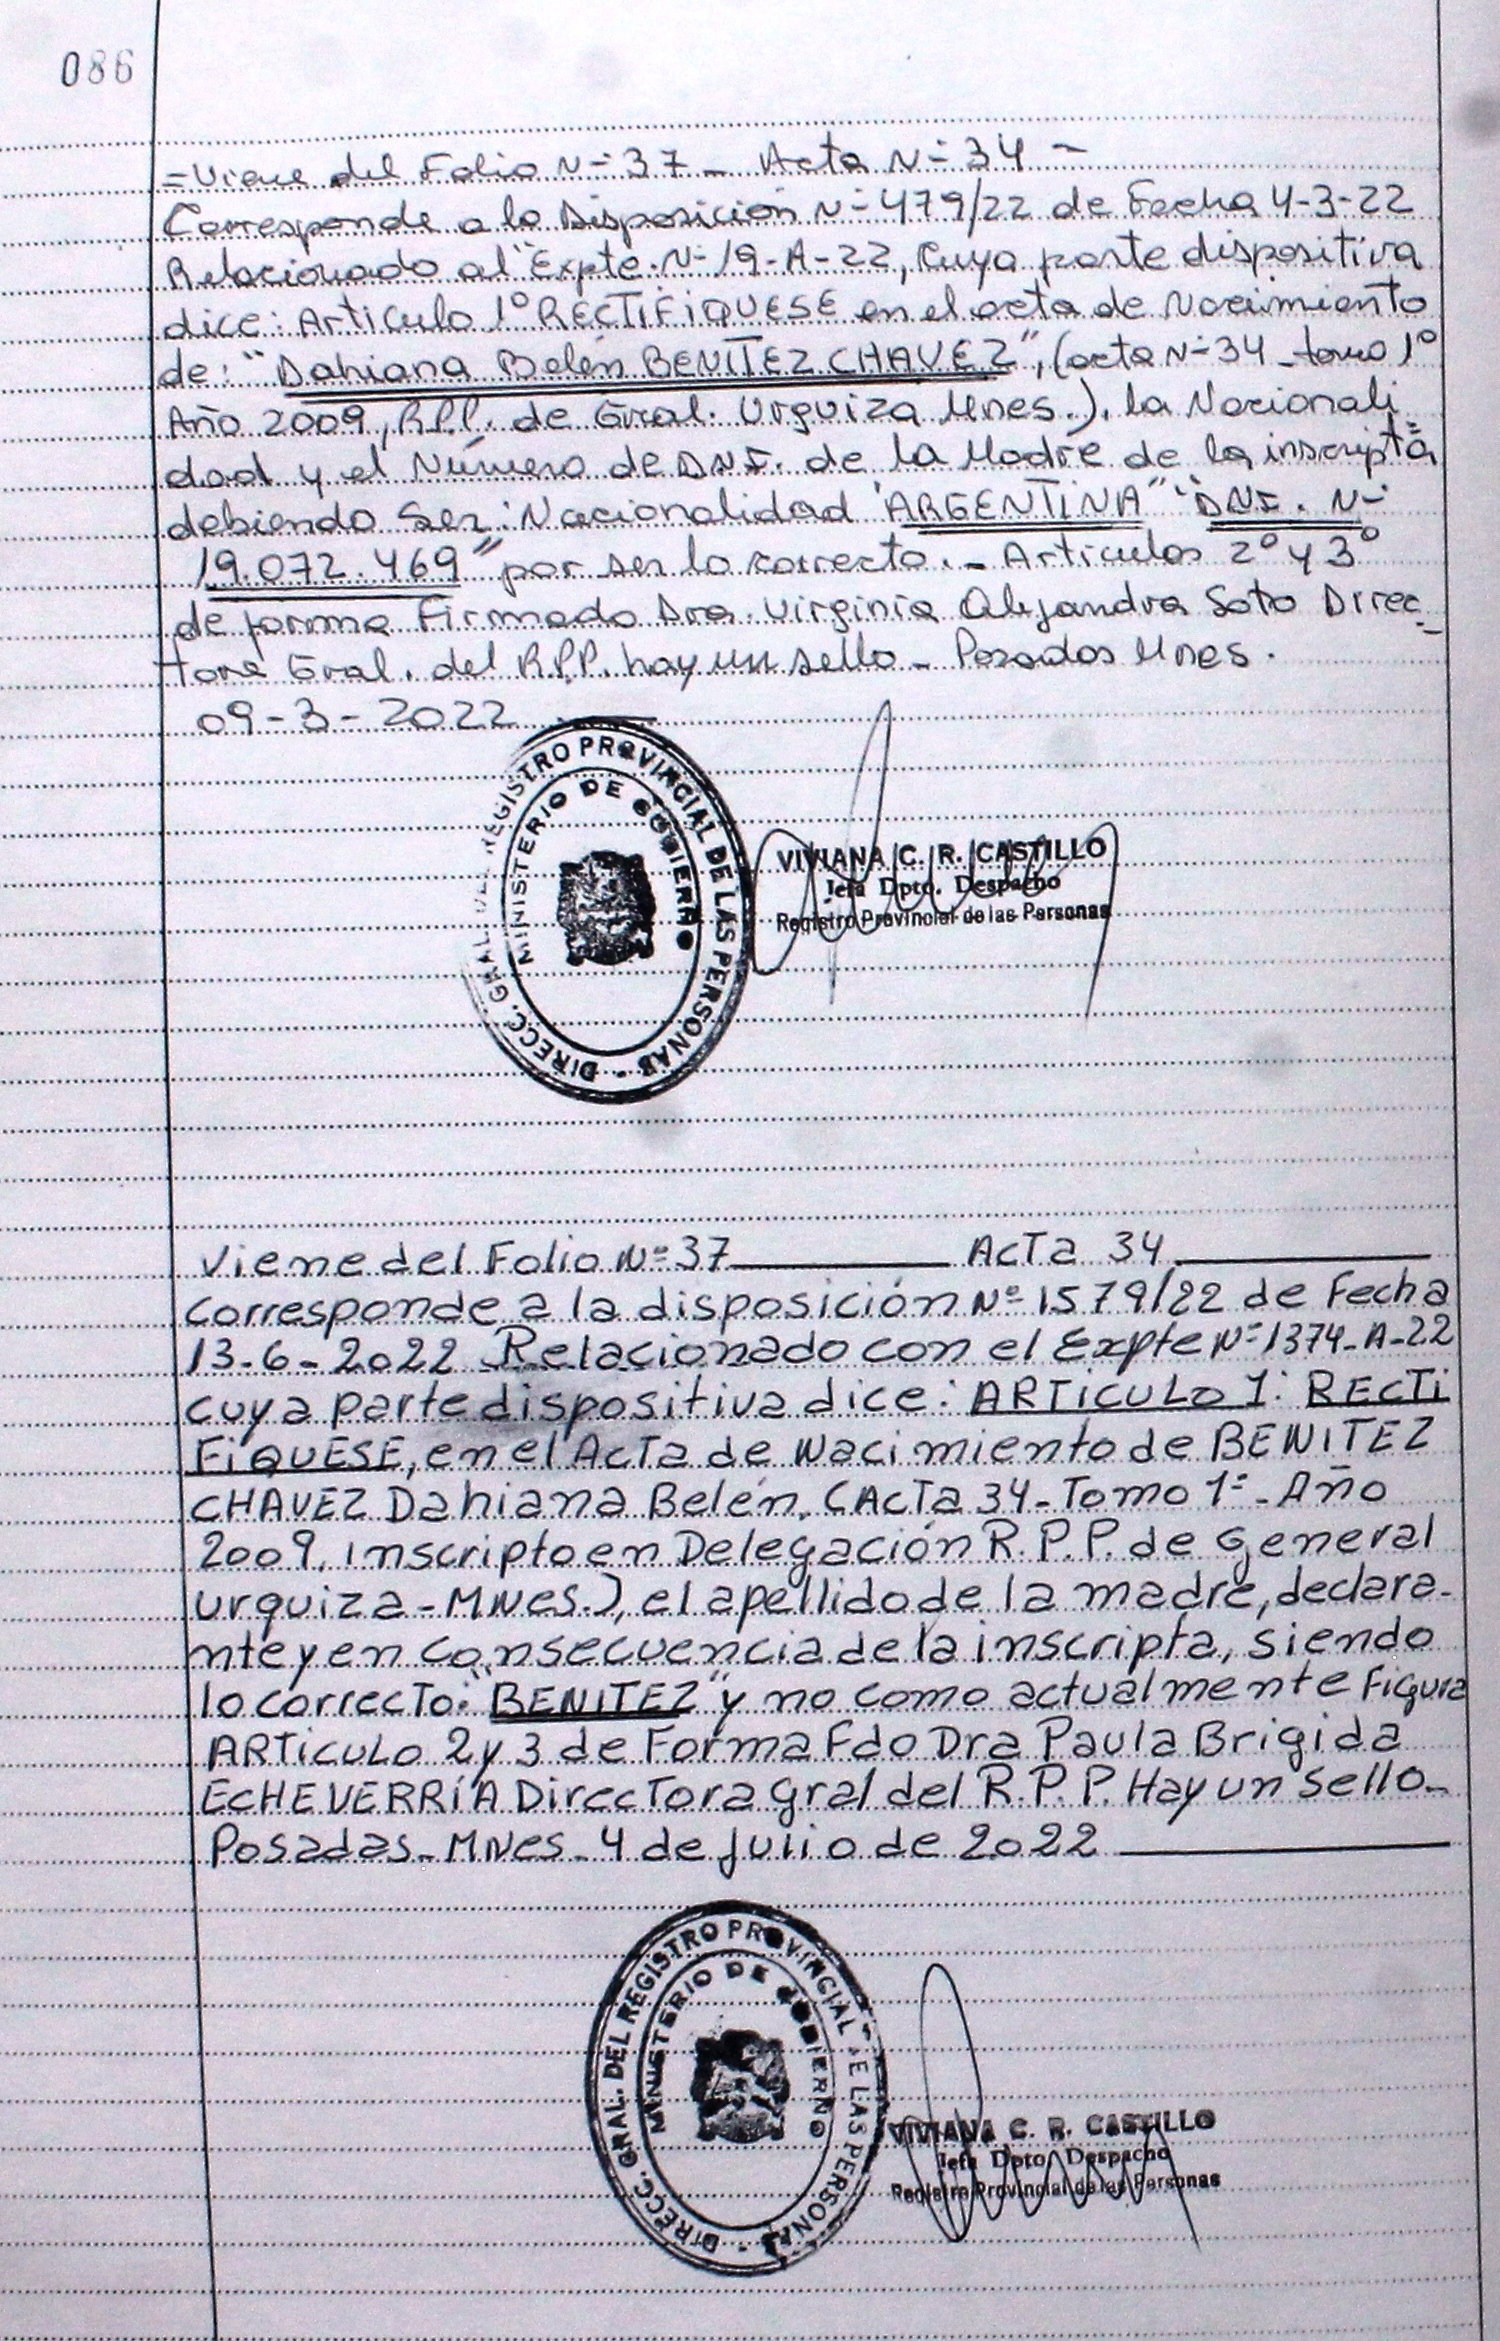 086
=Viene del Folio N-37 - Acta N-34 -
Corresponde a la Disposición N-479/22 de Fecha 4-3-22
Relacionado al Expte. N-19-A-22, cuya parte dispositiva
dice: Articulo 1º RECTIFIQUESE en el acta de Nacimiento
de: "Dahiana Belén BENÍTEZ CHAVEZ", (acta N-34 - tomo 1º
Año 2009, R.P.P. de Gral. Urquiza Mnes.), la Nacionali
dad y el Número de D.N.I. de la Madre de la inscripta
debiendo ser: Nacionalidad "ARGENTINA" "DNI. N-
19.072.469" por ser lo correcto. - Articulos 2º y 3º
de forma Firmado Dra. Virginia Alejandra Soto Direc-
tora Gral. del R.P.P. hay un sello - Posadas Mnes.
09-3-2022
DIRECC. GRAL. DEL REGISTRO PROVINCIAL DE LAS PERSONAS -
MINISTERIO DE GOBIERNO
VIVIANA C. R. CASTILLO
Jefa Dpto. Despacho
Registro Provincial de las Personas
Viene del Folio Nº 37 ACTA 34
Corresponde a la disposición Nº 1579/22 de Fecha
13-6-2022 Relacionado con el Expte Nº 1374-A-22
cuya parte dispositiva dice: ARTICULO 1: RECTI
FIQUESE, en el ACTA de Nacimiento de BENITEZ
CHAVEZ Dahiana Belén, (ACTA 34-Tomo 1º-Año
2009, inscripto en Delegación R.P.P. de General
Urquiza-MNes.), el apellido de la madre, declara-
nte y en consecuencia de la inscripta, siendo
lo correcto: "BENITEZ" y no como actualmente Figura
ARTICULO 2 y 3 de Forma Fdo Dra Paula Brigida
ECHEVERRÍA Directora Gral del R.P.P. Hay un Sello-
Posadas-MNes-4 de julio de 2022
DIRECC. GRAL. DEL REGISTRO PROVINCIAL DE LAS PERSONAS -
MINISTERIO DE GOBIERNO
VIVIANA C. R. CASTILLO
Jefa Dpto. Despacho
Registro Provincial de las Personas